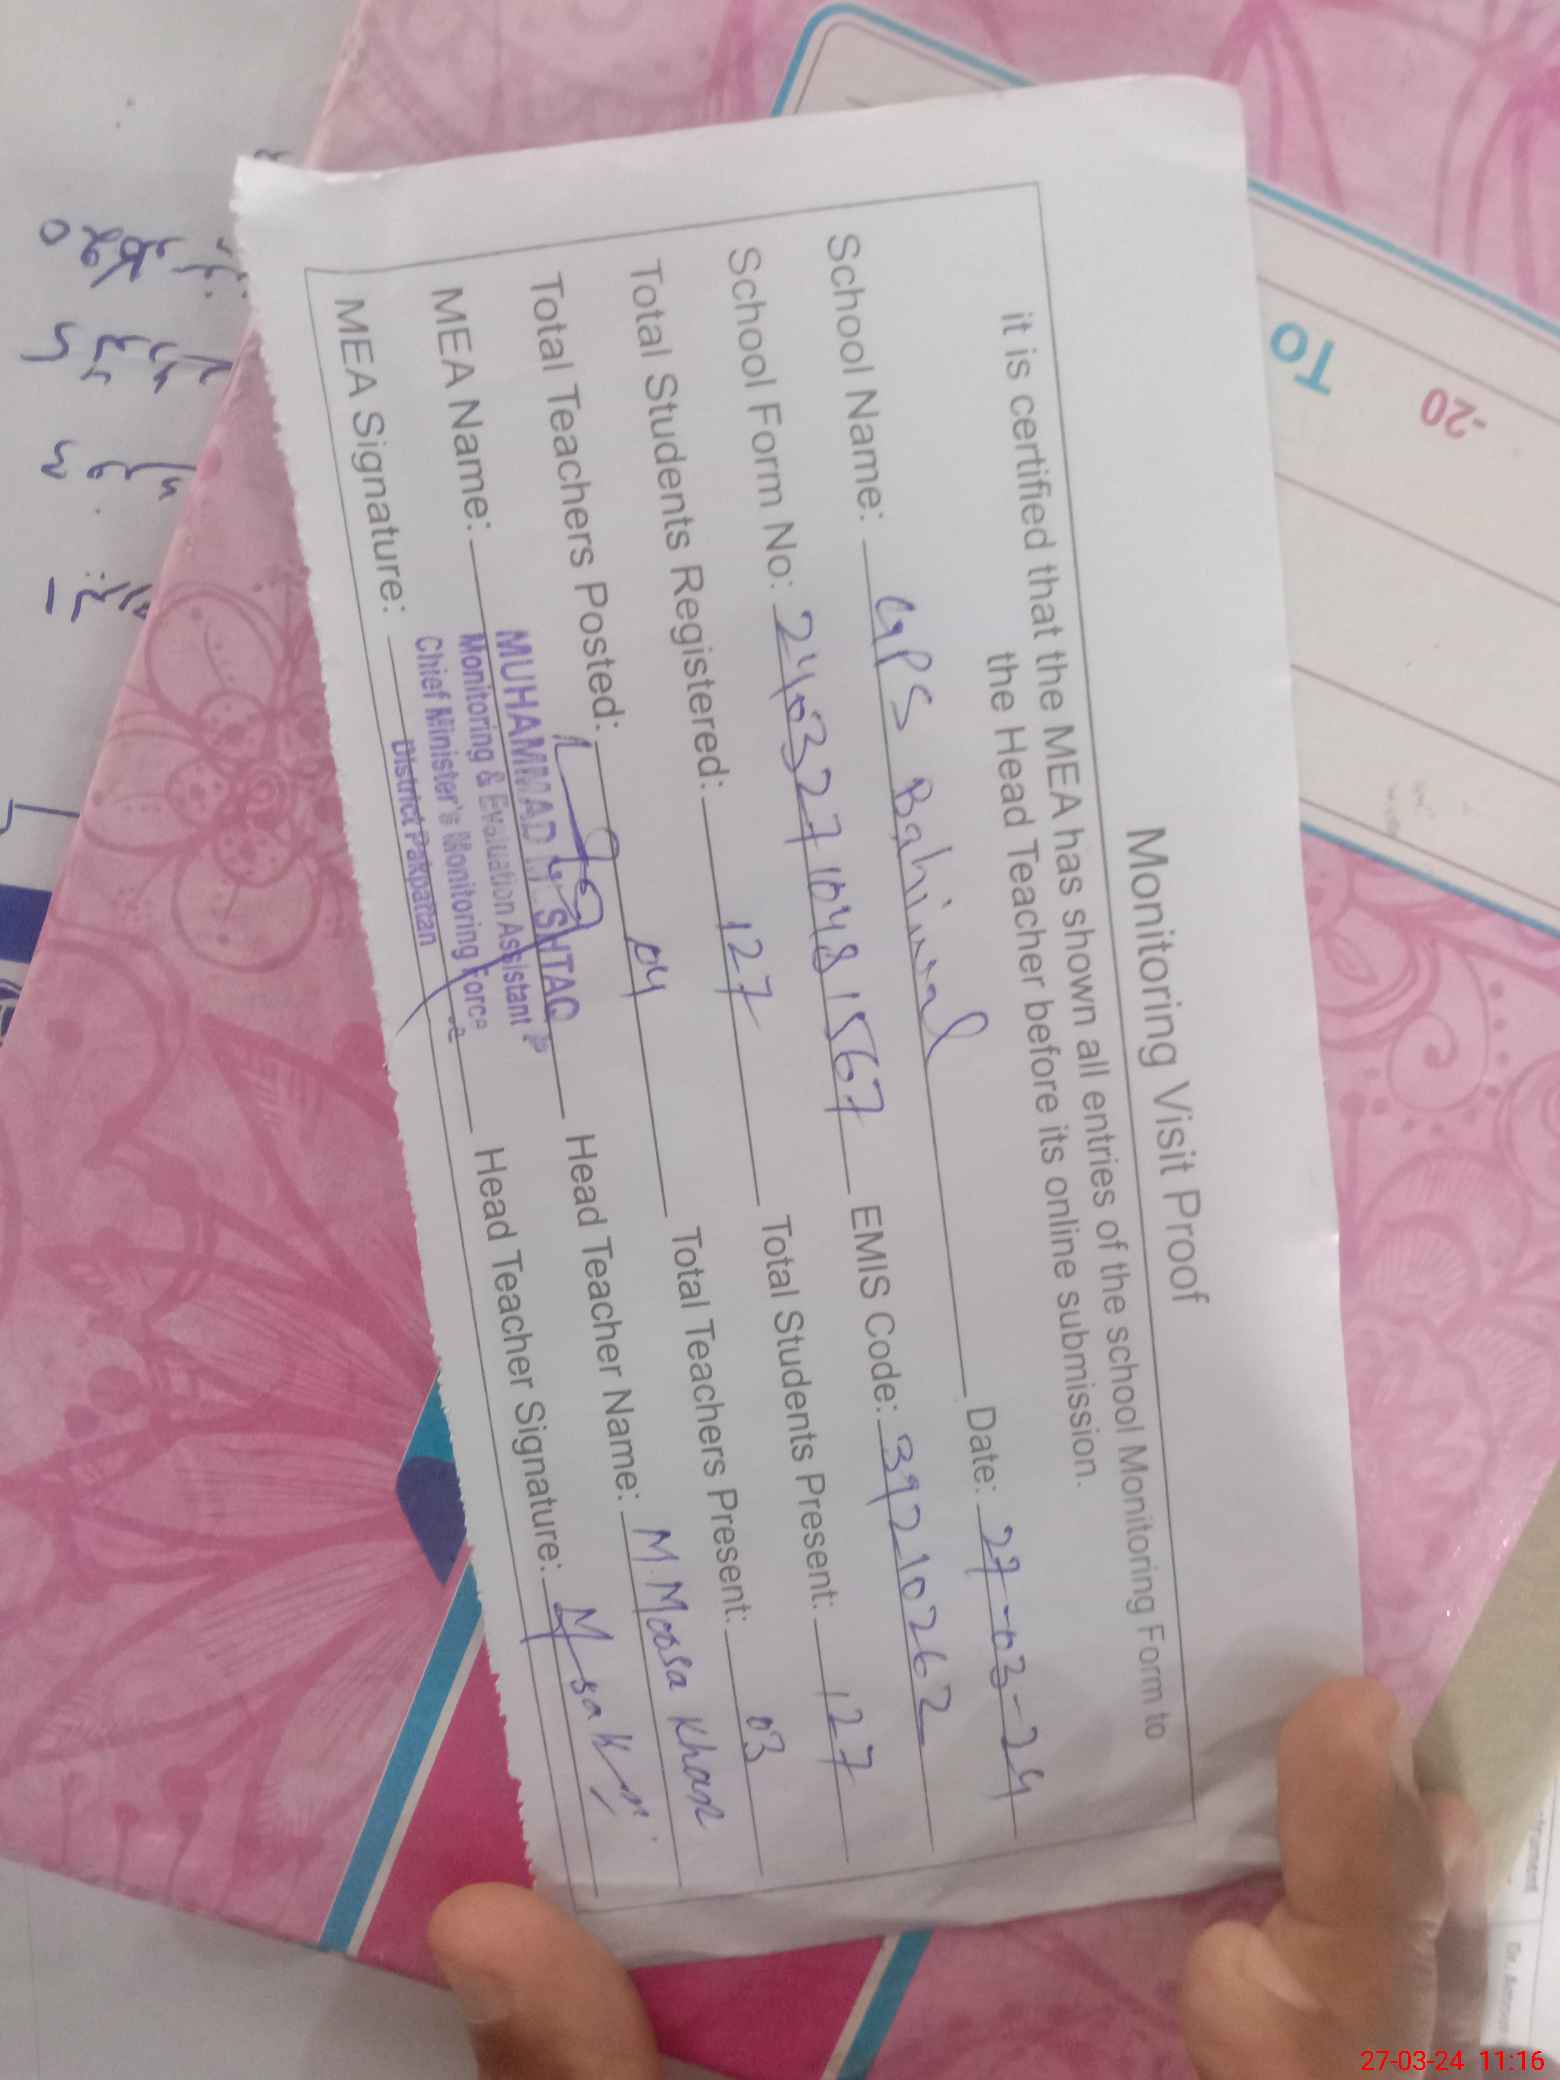 Monitoring Visit Proof
it is certified that the MEA has shown all entries of the school Monitoring Form to
the Head Teacher before its online submission.
School Name: GPS Date: 27-03-24
School Form No: 24032710481567 EMIS Code: 39210262
Total Students Registered: 127 Total Students Present: 127
Total Teachers Posted: 04 Total Teachers Present: 03
MEA Name: Head Teacher Name: M. Moosa Khan
MEA Signature: Head Teacher Signature:
MUHAMMAD MUSHTAQ
Monitoring & Evaluation Assistant
Chief Minister's Monitoring Force
District Pakpattan
To
-20
27-03-24 11:16